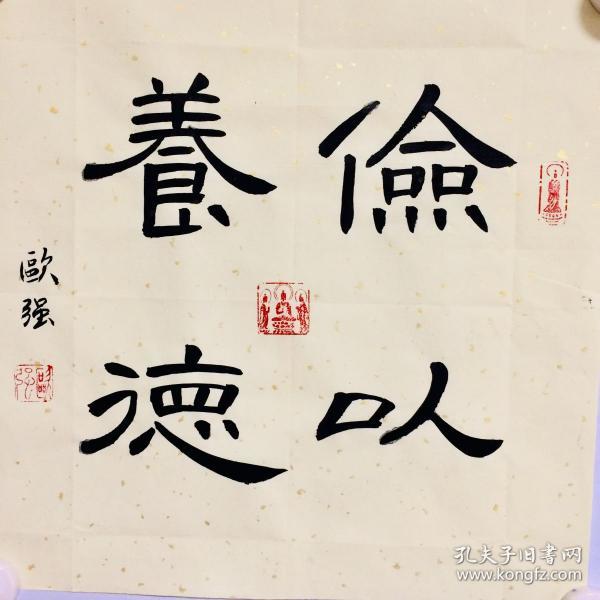 儉以
養德
歐强
孔夫子旧书网
www.kongfz.com